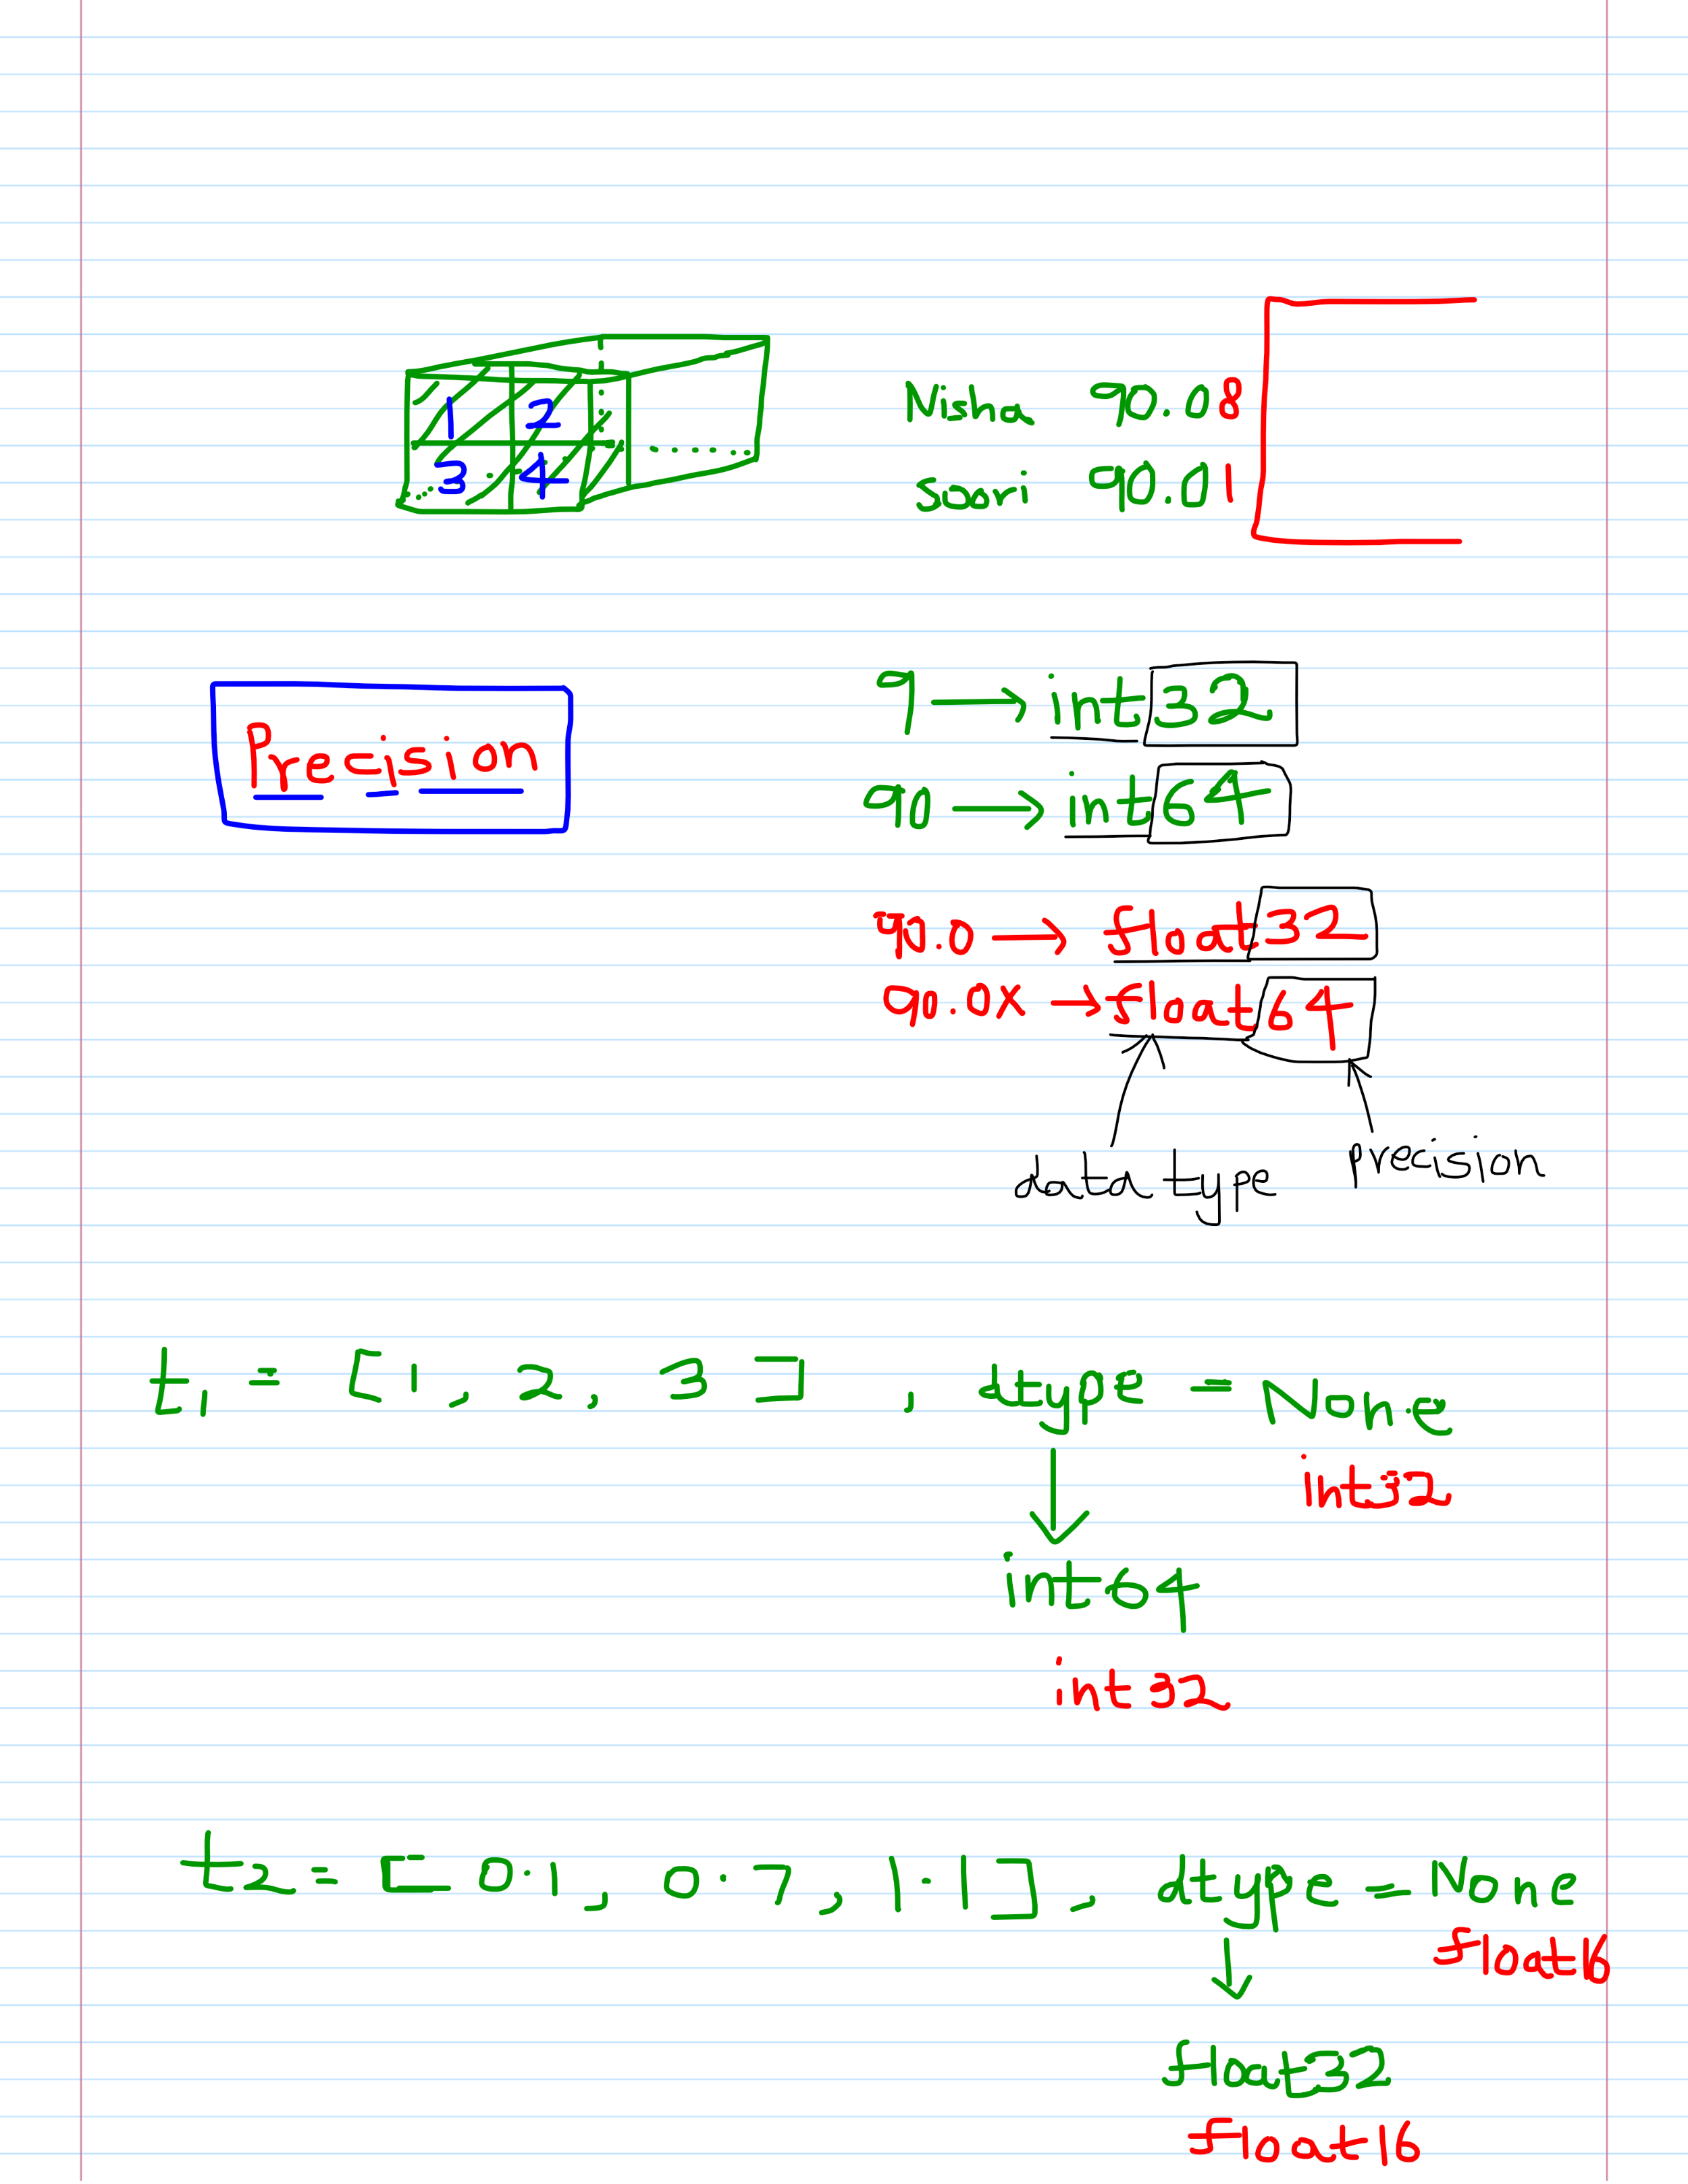 1 2
3 4
Nisha 90.08
saavi 90.01
Precision
9 → int32
90 → int64
90.0 → float32
90.0x → float64
data type precision
t1 = [1, 2, 3], dtype = None
int32
int64
int32
t2 = [0.1, 0.7, 1.1], dtype = None
float16
float32
float16